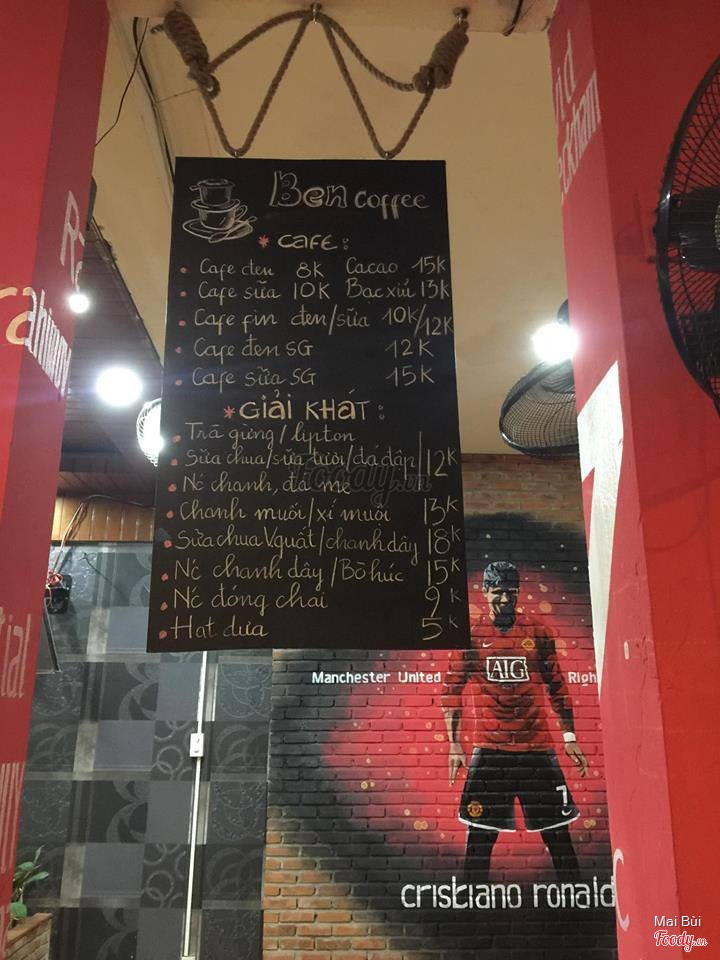 Ben coffee
* CAFE:
Cafe đen 8K Cacao 15K
Cafe sữa 10K Bạc xỉu 13K
Cafe fin đen/sữa 10K/12K
Cafe đen SG 12K
Cafe sữa SG 15K
* GIẢI KHÁT:
Trà gừng/lipton
Sữa chua/sữa tươi/đá đập 12K
Nc chanh, đá me
Chanh muối/xí muội 13K
Sữa chua V.quất/chanh dây 18K
Nc chanh dây/Bò húc 15K
Nc đóng chai 9K
Hạt dưa 5K
Foody.vn
AIG
Manchester United
Righ
7
cristiano ronald
ckham
tial
Mai Bùi
Foody.vn